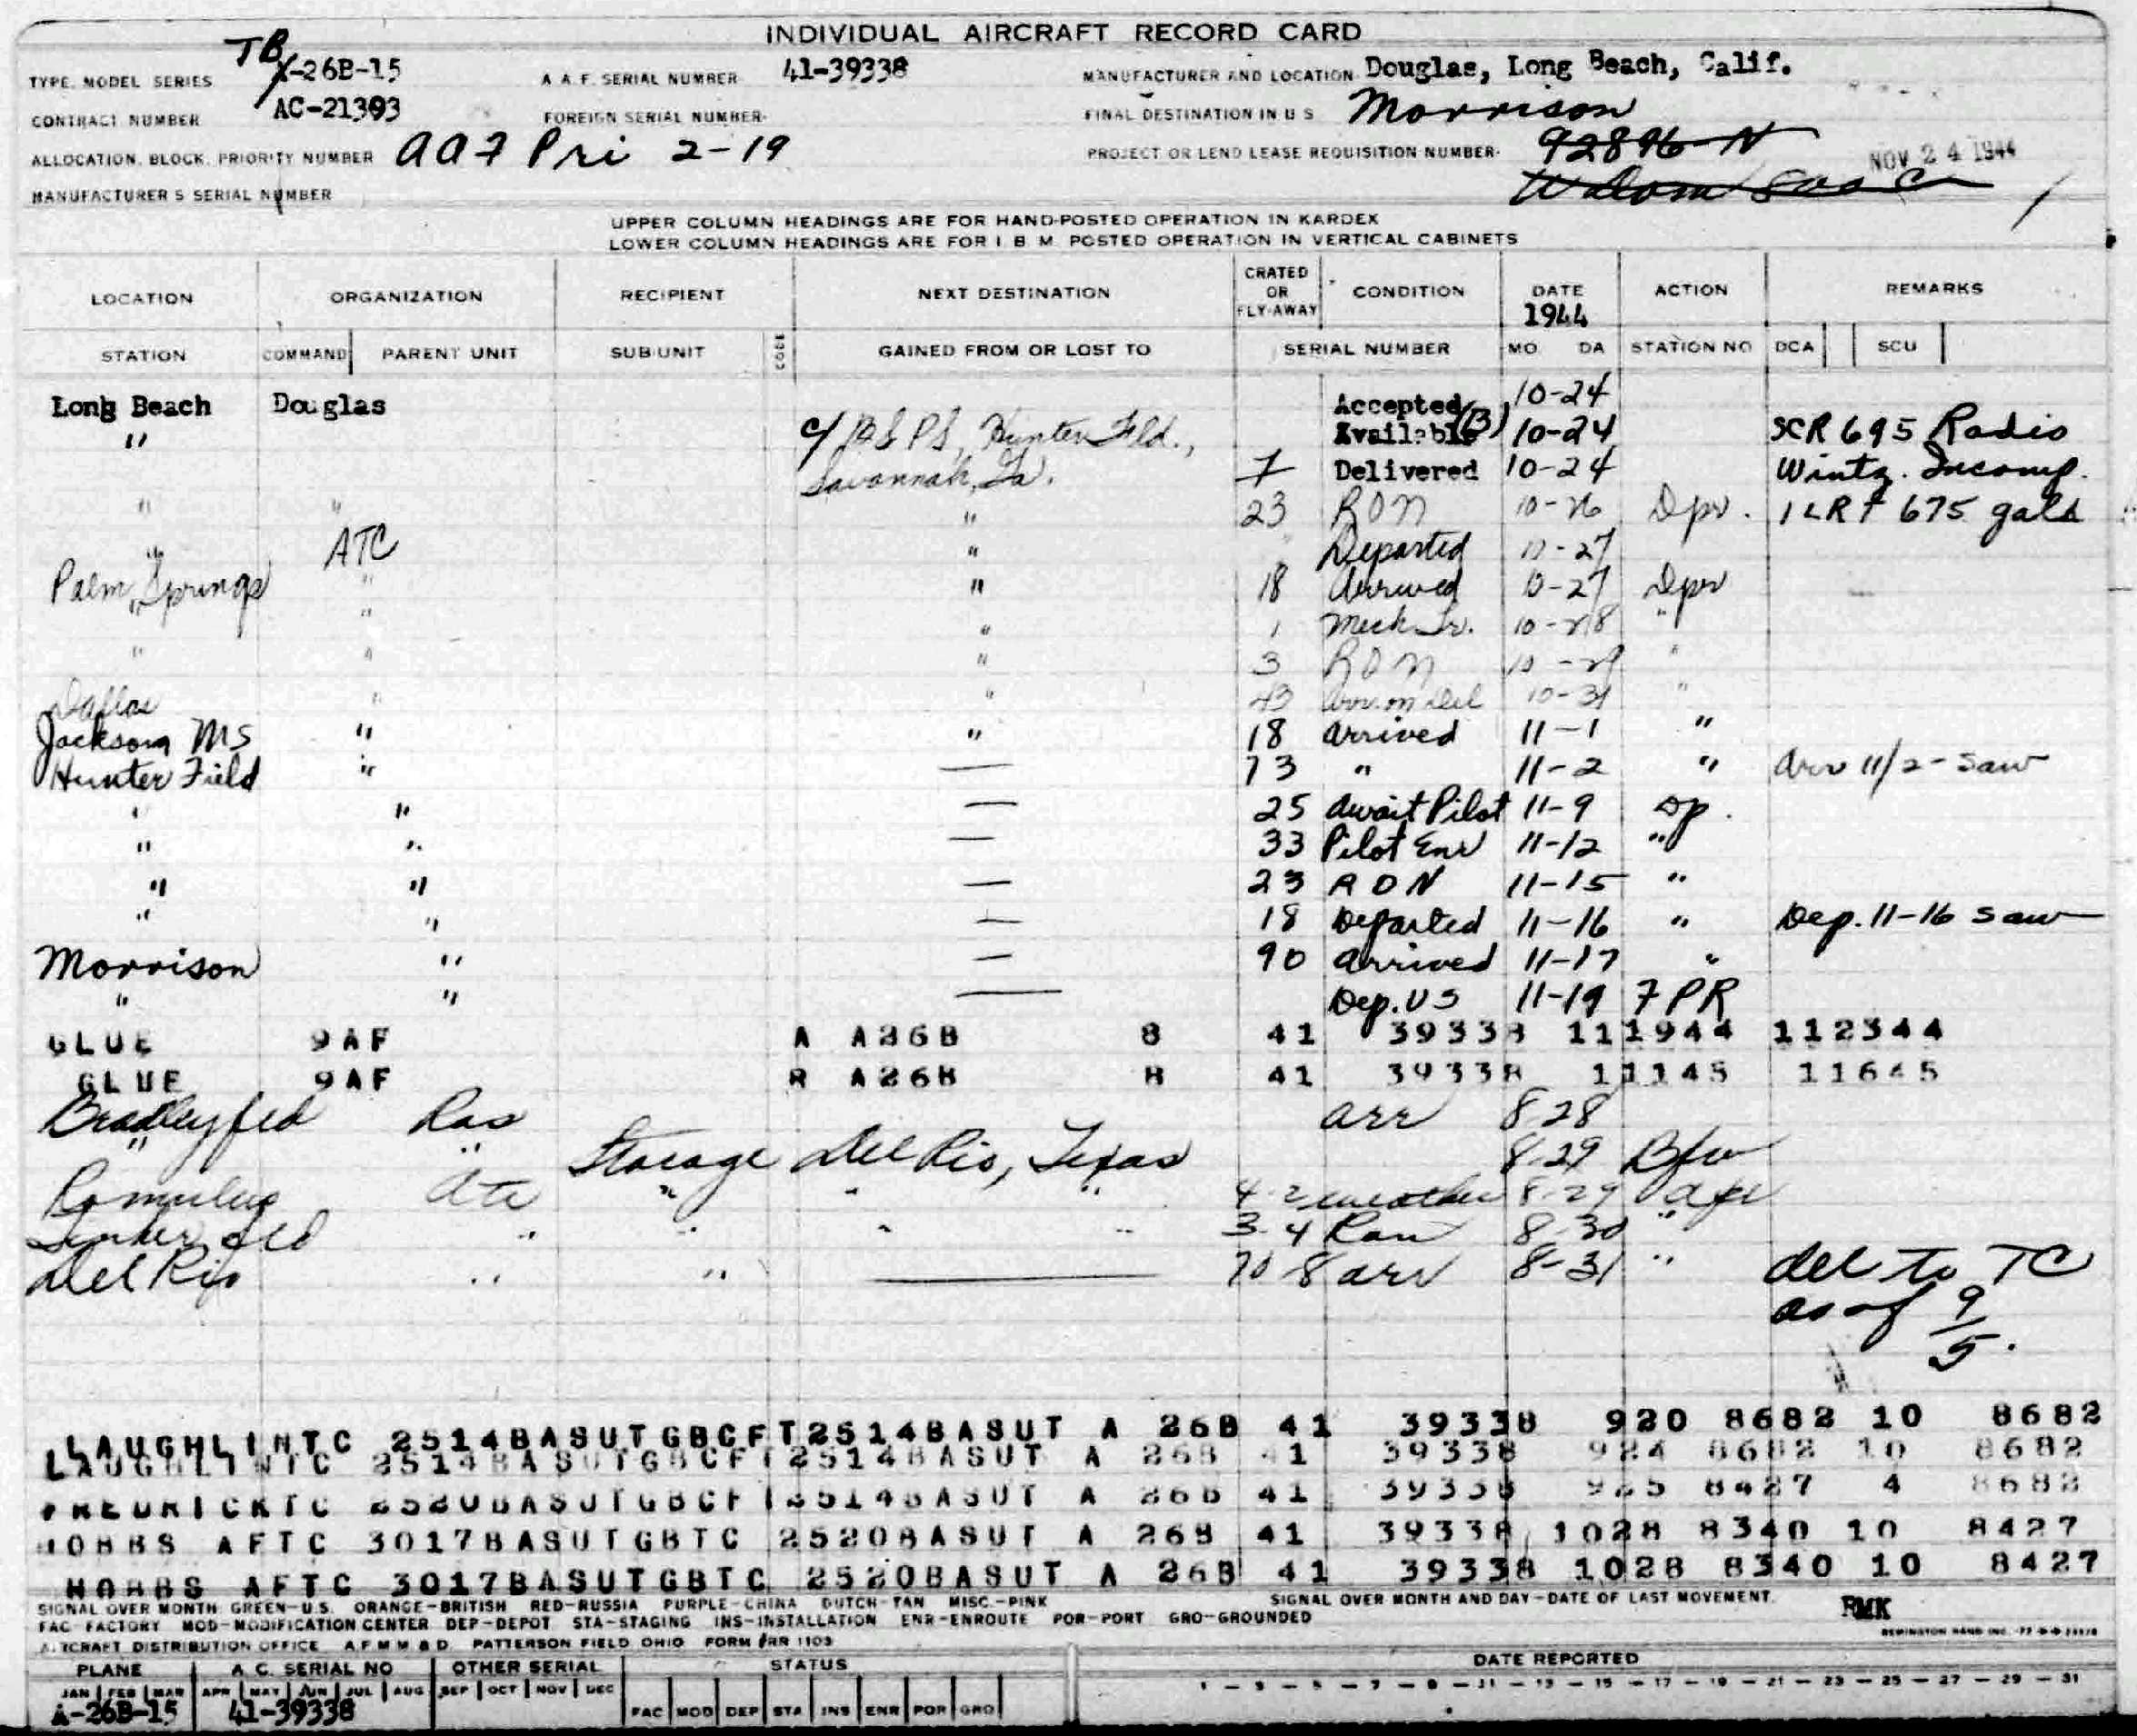 INDIVIDUAL AIRCRAFT RECORD CARD
TYPE, MODEL SERIES TB -26B-15 A.A.F. SERIAL NUMBER 41-39338 MANUFACTURER AND LOCATION Douglas, Long Beach, Calif.
CONTRACT NUMBER AC-21393 FOREIGN SERIAL NUMBER FINAL DESTINATION IN U S Morrison
ALLOCATION, BLOCK, PRIORITY NUMBER AAF Pri 2-19 PROJECT OR LEND LEASE REQUISITION NUMBER 92896-N NOV 24 1944
MANUFACTURER S SERIAL NUMBER
UPPER COLUMN HEADINGS ARE FOR HAND-POSTED OPERATION IN KARDEX
LOWER COLUMN HEADINGS ARE FOR I B M POSTED OPERATION IN VERTICAL CABINETS
LOCATION ORGANIZATION RECIPIENT NEXT DESTINATION CRATED OR FLY-AWAY CONDITION DATE 1944 ACTION REMARKS
STATION COMMAND PARENT UNIT SUB UNIT CODE GAINED FROM OR LOST TO SERIAL NUMBER MO DA STATION NO DCA SCU
Long Beach Douglas Accepted 10-24
" Hunter Fld., Available (B) 10-24 SCR 695 Radio
Savannah, Ga. 7 Delivered 10-24 Wintz. Incomp.
" " " 23 RON 10-26 Dpr. 1 LRF 675 gals
" ATC " Departed 10-27
Palm Springs " " 18 Arrived 10-27 Dpr
" " " 1 Mech Tr. 10-28 "
" " " 3 RON 10-29 "
Dallas " " 43 10-31 "
Jackson MS " " 18 arrived 11-1 "
Hunter Field " — 73 " 11-2 " Arr 11/2 - Saw
" " — 25 Await Pilot 11-9 Dp.
" " — 33 Pilot Enr 11-12 "
" " — 23 RON 11-15 "
" " — 18 Departed 11-16 " Dep. 11-16 Saw
Morrison " — 90 arrived 11-17 "
" " — Dep. US 11-19 7 PR
GLUE 9AF A A26B 8 41 39338 111944 112344
GLUE 9AF R A26B 8 41 39338 11145 11645
Bradley fld arr 8-28
" " Storage Del Rio, Texas 8-29
Romulus Atc " " " 4-2 weather 8-29
Tinker fld " " " " 3-4 Ron 8-30 "
Del Rio " " — 70-8 arr 8-31 " del to TC
as of 9/5.
LAUGHLINTC 2514BASUTGBCFT2514BASUT A 26B 41 39338 920 8682 10 8682
LAUGHLINTC 2514BASUTGBCFT2514BASUT A 26B 41 39338 924 8682 10 8682
FREDRICKTC 2520BASUTGBCFT2514BASUT A 26B 41 39338 925 8427 4 8682
HOBBS AFTC 3017BASUTGBTC 2520BASUT A 26B 41 39338 1028 8340 10 8427
HOBBS AFTC 3017BASUTGBTC 2520BASUT A 26B 41 39338 1028 8340 10 8427
SIGNAL OVER MONTH GREEN-U.S. ORANGE-BRITISH RED-RUSSIA PURPLE-CHINA DUTCH-TAN MISC.-PINK SIGNAL OVER MONTH AND DAY-DATE OF LAST MOVEMENT. RMK
FAC-FACTORY MOD-MODIFICATION CENTER DEP-DEPOT STA-STAGING INS-INSTALLATION ENR-ENROUTE POR-PORT GRO-GROUNDED
AIRCRAFT DISTRIBUTION OFFICE A.F.M M & D. PATTERSON FIELD, OHIO FORM #RR 1103 REMINGTON RAND INC.
PLANE A. C. SERIAL NO OTHER SERIAL STATUS DATE REPORTED
JAN FEB MAR APR MAY JUN JUL AUG SEP OCT NOV DEC 1 - 3 - 5 - 7 - 9 - 11 - 13 - 15 - 17 - 19 - 21 - 23 - 25 - 27 - 29 - 31
A-26B-15 41-39338 FAC MOD DEP STA INS ENR POR GRO